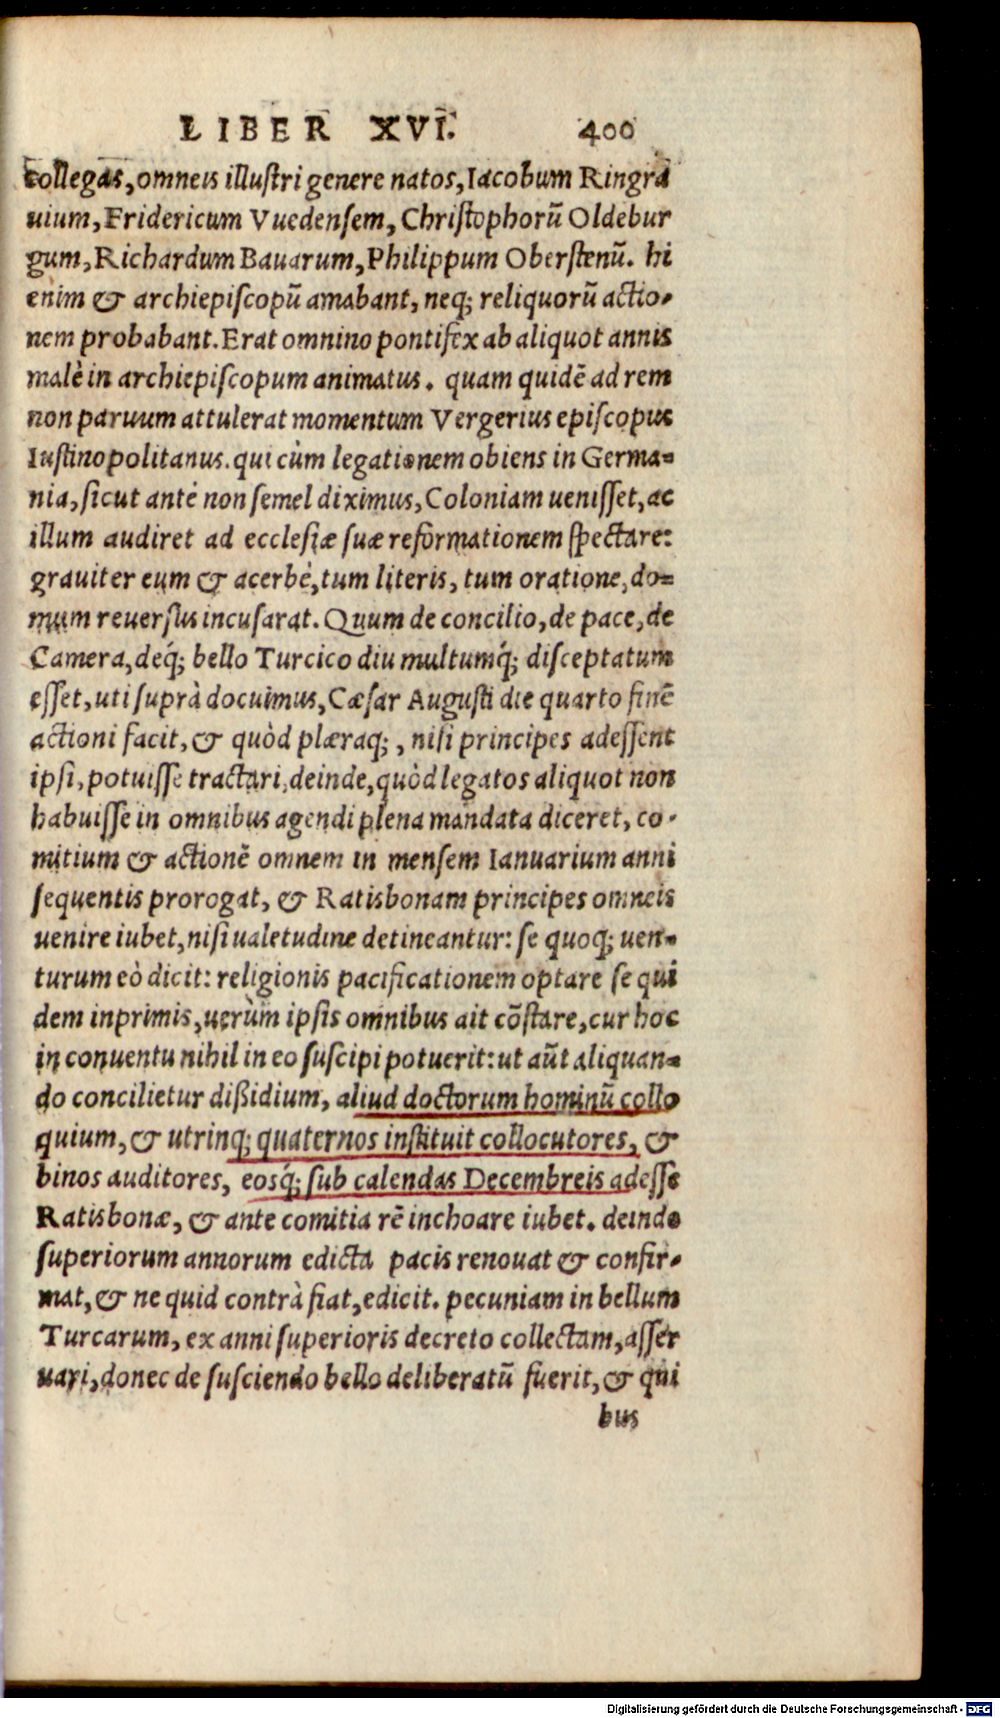 LIBER XVI. 400
collegas, omneis illustri genere natos, Iacobum Ringra
uium, Fridericum Vuedensem, Christophorū Oldebur
gum, Richardum Bauarum, Philippum Oberstenū. hi
enim & archiepiscopū amabant, neq; reliquorū actio-
nem probabant. Erat omnino pontifex ab aliquot annis
malè in archiepiscopum animatus. quam quidē ad rem
non paruum attulerat momentum Vergerius episcopus
Iustinopolitanus. qui cùm legationem obiens in Germa-
nia, sicut antè non semel diximus, Coloniam uenisset, ac
illum audiret ad ecclesiæ suæ reformationem spectare:
grauiter eum & acerbè, tum literis, tum oratione, do-
mum reuersus incusarat. Quum de concilio, de pace, de
Camera, deq́; bello Turcico diu multumq́; disceptatum
esset, uti suprà docuimus, Cæsar Augusti die quarto finē
actioni facit, & quòd plæraq;, nisi principes adessent
ipsi, potuisse tractari, deinde, quòd legatos aliquot non
habuisse in omnibus agendi plena mandata diceret, co-
mitium & actionē omnem in mensem Ianuarium anni
sequentis prorogat, & Ratisbonam principes omneis
uenire iubet, nisi ualetudine detineantur: se quoq; uen-
turum eò dicit: religionis pacificationem optare se qui
dem inprimis, uerùm ipsis omnibus ait cōstare, cur hoc
in conuentu nihil in eo suscipi potuerit: ut aūt aliquan-
do concilietur dißidium, aliud doctorum hominū collo
quium, & utrinq; quaternos instituit collocutores, &
binos auditores, eosq́; sub calendas Decembreis adesse
Ratisbonæ, & ante comitia rē inchoare iubet. deinde
superiorum annorum edicta pacis renouat & confir-
mat, & ne quid contrà fiat, edicit. pecuniam in bellum
Turcarum, ex anni superioris decreto collectam, asser
uari, donec de susciendo bello deliberatū fuerit, & qui
bus
Digitalisierung gefördert durch die Deutsche Forschungsgemeinschaft - DFG